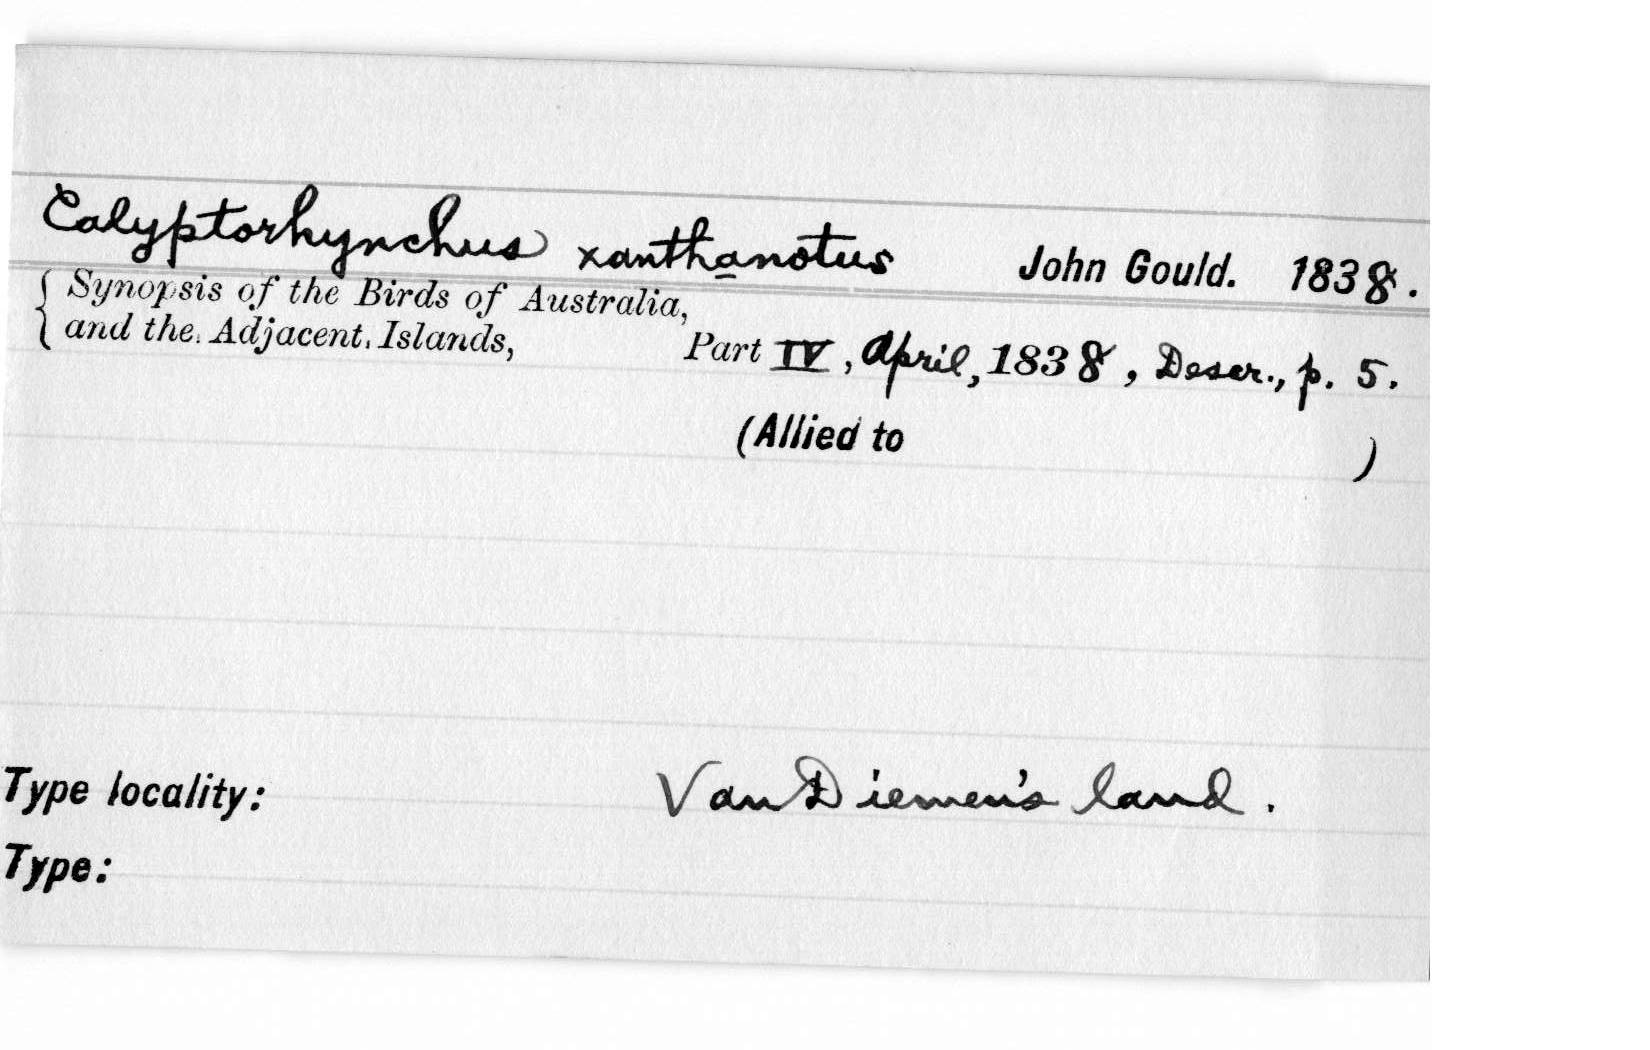 Calyptorhynchus xanthanotus John Gould. 1838.
Synopsis of the Birds of Australia,
and the Adjacent Islands, Part IV, April, 1838, Descr., p. 5.
(Allied to )
Type locality: Van Diemen's land.
Type: